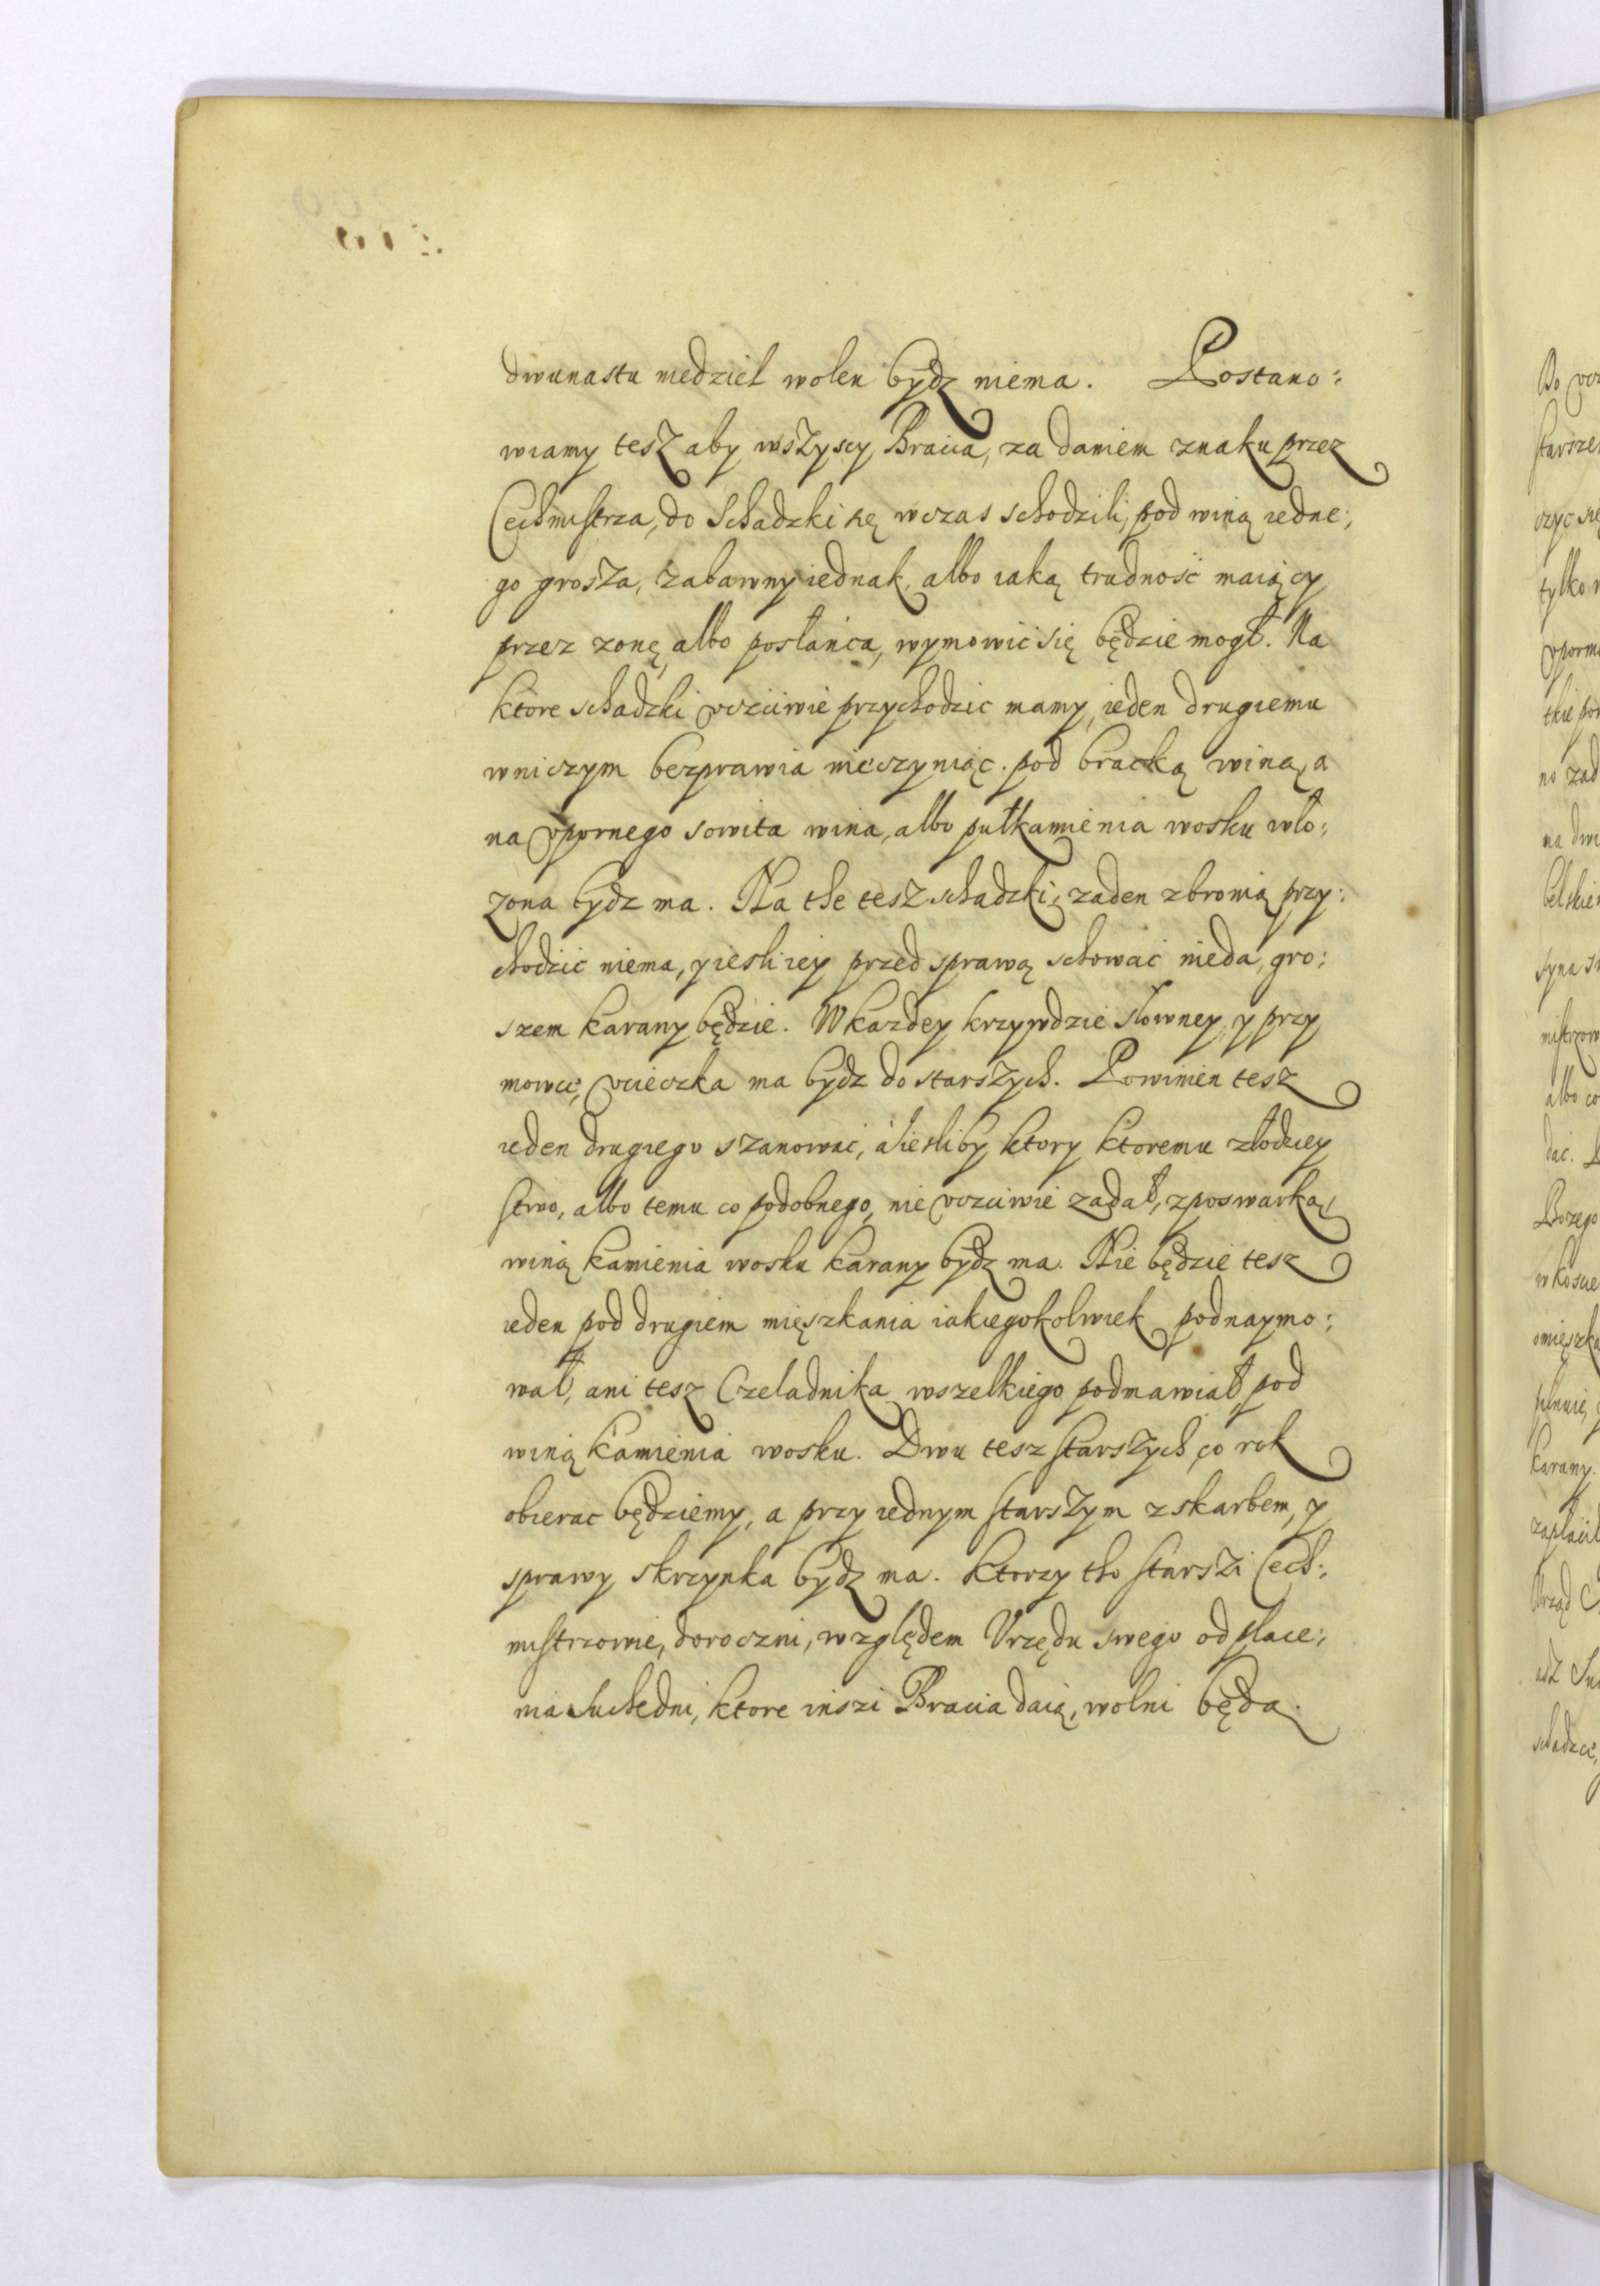 dwunastu niedziel wolen bydz niema. Postano:
wiamy tesz aby wszyscy Bracia, za daniem znaku przez
Cechmistrza, do Schadzki się wczas schodzili, pod winą iedne:
go grosza, zabawny iednak, albo iaką trudność maiący
przez zonę, albo posłańca, wymowić się będzie mogł. Na
ktore schadzki vczciwie przychodzic mamy, ieden drugiemu
wniczym bezprawia nieczyniąc. pod bracką winą, a
na vpornego sowita wina, albo pułkamienia wosku wło:
zona bydz ma. Na the tesz schadzki, zaden zbronią przy:
chodzić niema, y iesli iey przed sprawą schować nieda, gro:
szem karany będzie. W kazdey krzywdzie słowney, y przy
mowce, vcieczka ma bydz do starszych. Powinien tesz
ieden drugiego szanować, a iesliby ktory ktoremu złodziey
stwo, albo temu co podobnego, nie vczciwie zadał, z poswarką,
winą kamienia wosku karany bydz ma. Nie będzie tesz
ieden pod drugiem mięszkania iakiegokolwiek podnaymo:
wał, ani tesz Czeladnika wszelkiego podmawiał, pod
winą kamienia wosku. Dwu tesz starszych, co rok
obierac będziemy, a przy iednym starszym z skarbem, y
sprawy skrzynka bydz ma. Ktorzy tho starszi Cech:
mistrzowie, doroczni, względem Vrzędu swego od place:
nia Suchedni, ktore inszi Bracia daią, wolni będą.